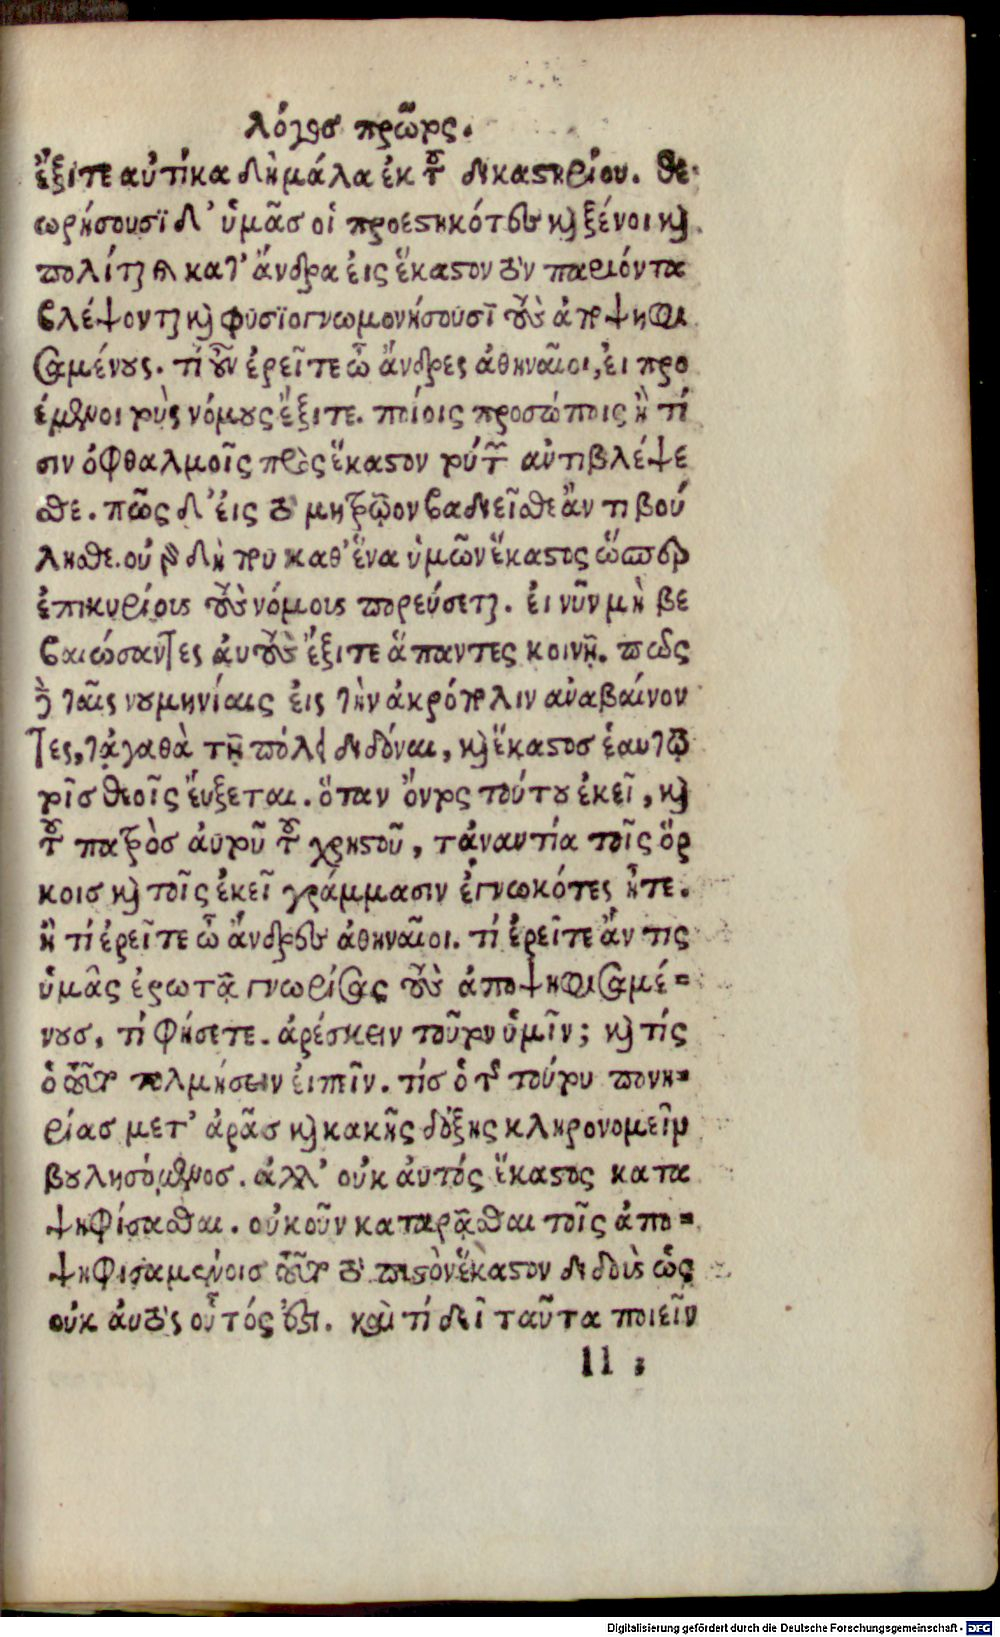 λόγοσ πρῶτος.
ἔξιτε αὐτίκα δὴ μάλα ἐκ τοῦ δικαστηρίου. θε
ωρήσουσϊ δ' ὑμᾶσ οἱ προεστηκότες καὶ ξένοι καὶ
πολίται καὶ κατ' ἄνδρα ἐις ἕκαστον τὸν παριόντα
βλέψονται καὶ φυσϊογνωμονήσουσϊ τοὺς ἀποψηφι
σαμένους. τί οὖν ἐρεῖτε ὦ ἄνδρες ἀθηναῖοι, ἐι προ
έμενοι τοὺς νόμους ἔξιτε. ποίοις προσώποις ἢ τί
σιν ὀφθαλμοῖς πρὸς ἕκαστον τούτων ἀντιβλέψε
σθε. πῶς δ' ἐις τὸ μητρῷον βαδιεῖσθε ἄν τι βού
λησθε. οὐ γὰρ δὴ που καθ' ἕνα ὑμῶν ἕκαστος ὥσπερ
ἐπὶ κυρίους τοὺς νόμους πορεύσεται. ἐι νῦν μὴ βε
βαιώσαντες ἀυτοὺς ἔξιτε ἅπαντες κοινῇ. πῶς
δὲ ταῖς νουμηνίαις ἐις τὴν ἀκρόπολιν ἀναβαίνον
τες, τἀγαθὰ τῇ πόλει διδόναι, καὶ ἕκαστοσ ἑαυτῷ
τοῖσ θεοῖς ἔυξεται. ὅταν ὄντος τούτου ἐκεῖ, καὶ
τοῦ πατρὸσ ἀυτοῦ τοῦ χρηστοῦ, τἀναντία τοῖς ὅρ
κοισ καὶ τοῖς ἐκεῖ γράμμασιν ἐγνωκότες ἦτε.
ἢ τί ἐρεῖτε ὦ ἄνδρες ἀθηναῖοι. τί ἐρεῖτε ἄν τις
ὑμᾶς ἐρωτᾷ γνωρίσας τοὺς ἀποψηφισαμέ=
νουσ, τί φήσετε. ἀρέσκειν τοῦτον ὑμῖν; καὶ τίς
ὁ ταῦτα τολμήσων ἐιπεῖν. τίσ ὁ τῆς τούτου πονη=
ρίασ μετ' ἀρᾶσ καὶ κακῆς δόξης κληρονομεῖν
βουλησόμενοσ. ἀλλ' οὐκ ἀυτός ἕκαστος κατα
ψηφίσασθαι. οὐκοῦν καταρᾶσθαι τοῖς ἀπο=
ψηφισαμένοισ ταῦτα τὸ πιστὸν ἕκαστον διδοὺς ὡς
οὐκ ἀυτὸς οὗτός ἐστι. καὶ τί δεῖ ταῦτα ποιεῖν
11 ;
Digitalisierung gefördert durch die Deutsche Forschungsgemeinschaft - DFG